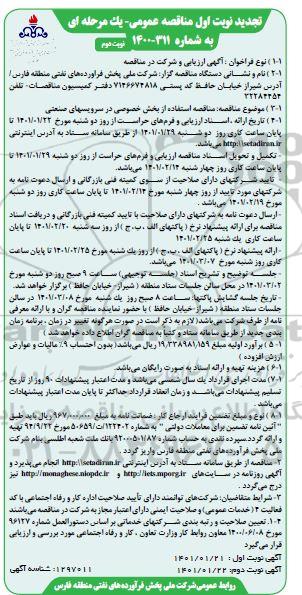 تجدید نوبت اول مناقصه عمومی- یك مرحله ای
به شماره ۳۱۱-۱۴۰۰
نوبت دوم
۱-۱ ) نوع فراخوان : آگهی ارزیابی و شرکت در مناقصه
۲-۱ ) نام و نشانی دستگاه مناقصه گزار: شرکت ملی پخش فرآورده‌های نفتی منطقه فارس/
آدرس شیراز خیابان حافظ کد پستی ۷۱۴۶۶۷۴۸۱۸ دفتر کمیسیون مناقصات- تلفن
۳۲۲۸۴۴۵۴
۳-۱ ) موضوع مناقصه: مناقصه استفاده از بخش خصوصی در سرویسهای صنعتی
۴-۱ ) تاریخ ارائه ، اسناد ارزیابی و فرم‌های حراست از روز دو شنبه مورخ ۱۴۰۱/۰۱/۲۲ تا
پایان ساعت کاری روز دو شنبه ۱۴۰۱/۰۱/۲۹ از طریق سامانه ستاد به آدرس اینترنتی
http://setadiran.ir می باشد.
- تکمیل و تحویل اسناد مناقصه ارزیابی و فرم‌های حراست از روز دو شنبه ۱۴۰۱/۰۱/۲۹ تا
پایان ساعت کاری روز چهار شنبه ۱۴۰۱/۰۲/۱۴ می باشد.
- تایید شرکتهای دارای صلاحیت از سوی کمیته فنی بازرگانی و ارسال دعوت نامه به
شرکتهای مورد تایید از روز چهار شنبه مورخ ۱۴۰۱/۰۲/۱۴ تا پایان ساعت کاری روز دو شنبه
مورخ ۱۴۰۱/۰۲/۱۹ می باشد .
- ارسال دعوت نامه به شرکتهای دارای صلاحیت با تایید کمیته فنی بازرگانی و دریافت اسناد
مناقصه برای ارائه پیشنهاد نرخ ( پاکتهای الف ، ب، ج ) از روز سه شنبه ۱۴۰۱/۰۲/۲۰ تا پایان
ساعت کاری یك شنبه ۱۴۰۱/۰۲/۲۵
- ارائه پیشنهاد نرخ ( پاکتهای الف ، ب، ج ) از روز یك شنبه مورخ ۱۴۰۱/۰۲/۲۵ تا پایان ساعت
کاری روز شنبه مورخ ۱۴۰۱/۰۳/۰۷ می باشد.
- جلسه توضیح و تشریح اسناد (جلسه توجیهی) ساعت ۹ صبح روز دو شنبه مورخ
۱۴۰۱/۰۲/۰۲ در محل سالن جلسات ستاد منطقه ( شیراز- خیابان حافظ ) برگزار خواهد شد.
- تاریخ جلسه گشایش پاکتها: ساعت ۸ صبح روز یك شنبه مورخ ۱۴۰۱/۰۳/۰۸ در سالن
جلسات ستاد منطقه ( شیراز-خیابان حافظ ) با حضور نماینده مناقصه گران و با ارائه معرفی
نامه از طرف شرکت می باشد( لازم به ذکر است در صورت هر گونه تغییر در زمان ، برنامه زمان
بندی جدید از طریق سامانه ستاد و کتباً به مناقصه گران اطلاع داده خواهد شد )
۵-۱ ) برآورد اولیه مبلغ ۱۹,۳۳۸,۹۸۱,۱۵۹ ریال می‌باشد( بدون احتساب ۹٪ مالیات و عوارض
ارزش افزوده )
۶-۱ ) هزینه تهیه و ارائه اسناد به صورت رایگان می‌باشد.
۷-۱ ) مدت اجرای قرارداد یك سال شمسی می‌باشد و مدت اعتبار پیشنهادات ۹۰ روز از تاریخ
تسلیم پیشنهادات می‌باشد و زمان انعقاد قرارداد حداکثر تا پایان مدت اعتبار پیشنهادات
می‌باشد.
۸-۱ ) نوع و مبلغ تضمین فرایند ارجاع کار : ضمانت نامه به مبلغ ۹۶۷,۰۰۰,۰۰۰ ریال باید طبق
" آئین نامه تضمین برای معاملات دولتی " به شماره ۱۲۳۴۰۲/ت۵۰۶۵۹ه مورخ ۹۴/۹/۲۲ تهیه
و ارائه گردد.
ملی پخش فرآورده‌های نفتی منطقه فارس واریز گردد.
۲- مناقصه از طریق سامانه ستاد به آدرس اینترنتی http://setadiran.ir انجام می‌پذیرد و
آگهی روزنامه در سایتهای http://iets.mporg.ir و http://monaghese.niopdc.ir نیز
درج می‌گردد .
۳- شرایط متقاضیان: شرکت‌های توانمند دارای تأیید صلاحیت اداره کار و رفاه اجتماعی با کد
فعالیت ۴ (خدمات عمومی) و صلاحیت ایمنی دارای اعتبار مجاز به شرکت در مناقصه می‌باشند
۴-۱. تعیین صلاحیت و رتبه بندی شرکتهای خدماتی بر اساس دستورالعمل شماره ۹۶۱۲۷
مورخ ۱۴۰۰/۰۶/۰۸ معاون روابط کار وزارت تعاون ، کار و رفاه اجتماعی مورد بررسی و ارزیابی
قرار می‌گیرد
آگهی نوبت اول : ۱۴۰۱/۰۱/۲۱
آگهی نوبت دوم: ۱۴۰۱/۰۱/۲۲ شناسه آگهی: ۱۲۹۷۰۱۱
روابط عمومی شرکت ملی پخش فرآورده‌های نفتی منطقه فارس